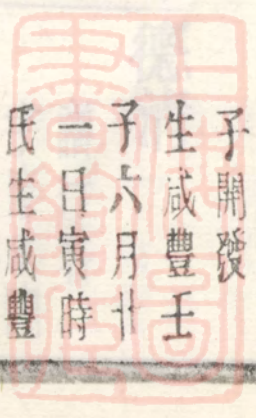 子開發
生咸豐壬
子六月廿
一日寅時
氏生咸豐